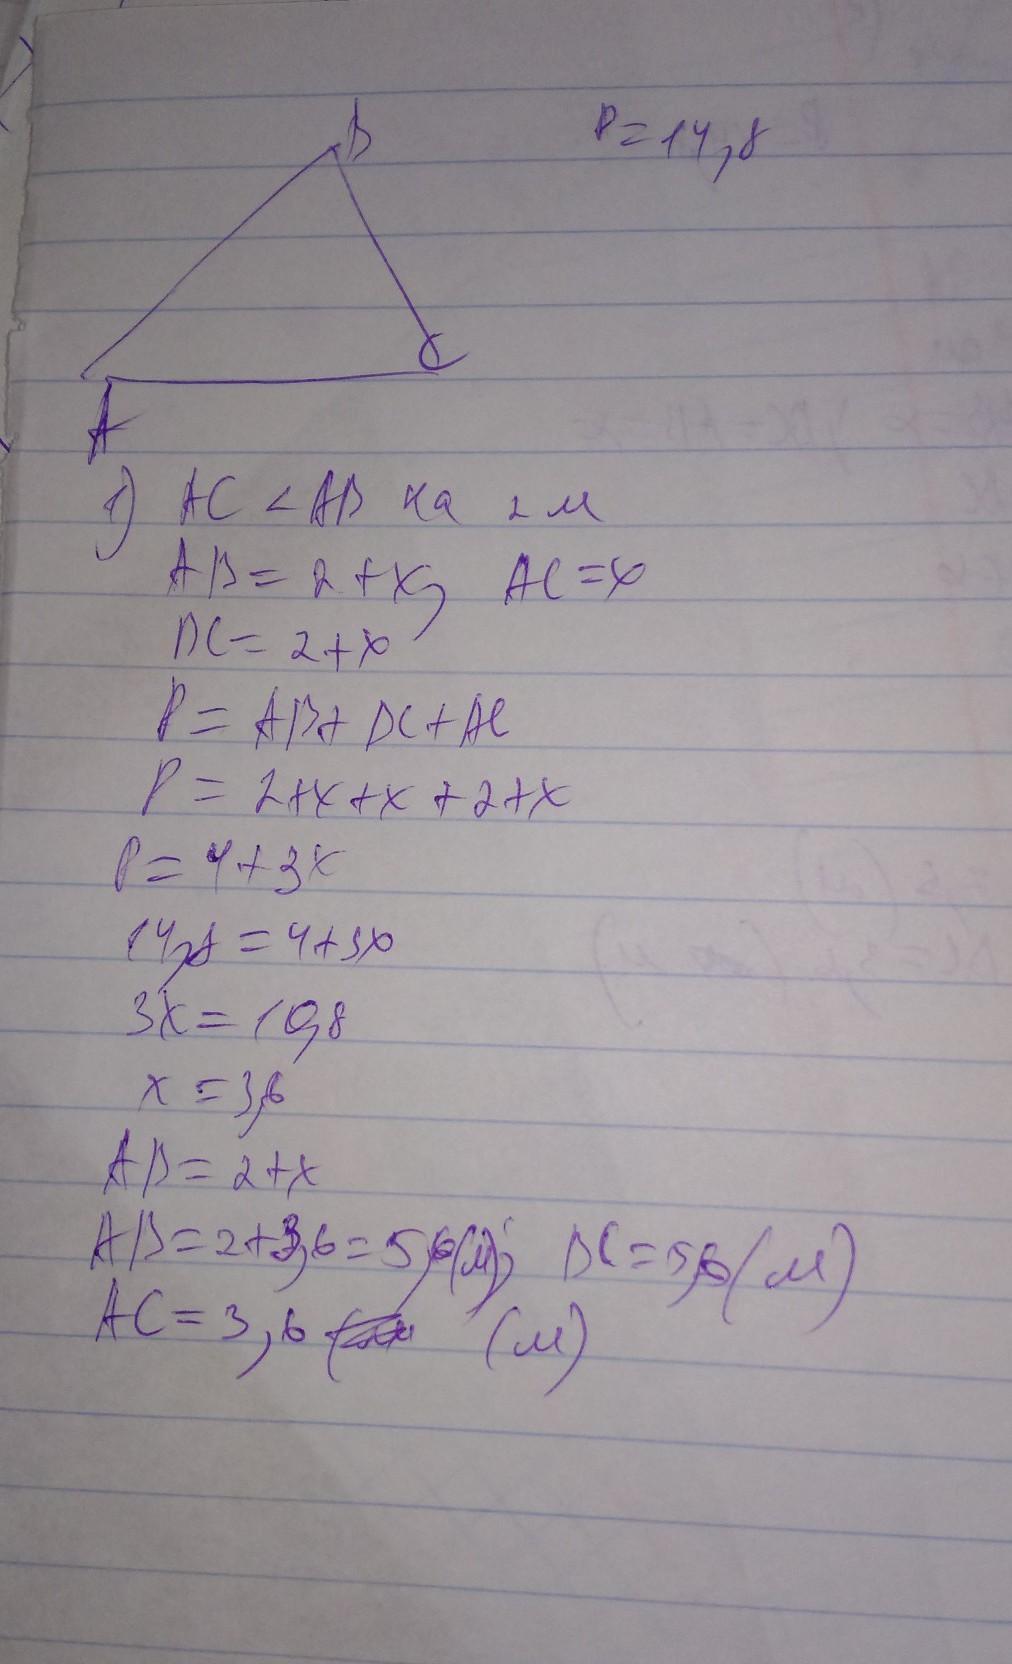 B
P=14,8
C
A
1) AC < AB на 2 м
AB = 2+x, AC=x
BC = 2+x
P = AB+BC+AC
P = 2+x+x+2+x
P = 4+3x
14,8 = 4+3x
3x = 10,8
x = 3,6
AB = 2+x
AB = 2+3,6 = 5,6(м); BC = 5,6 (м)
AC = 3,6 (м)